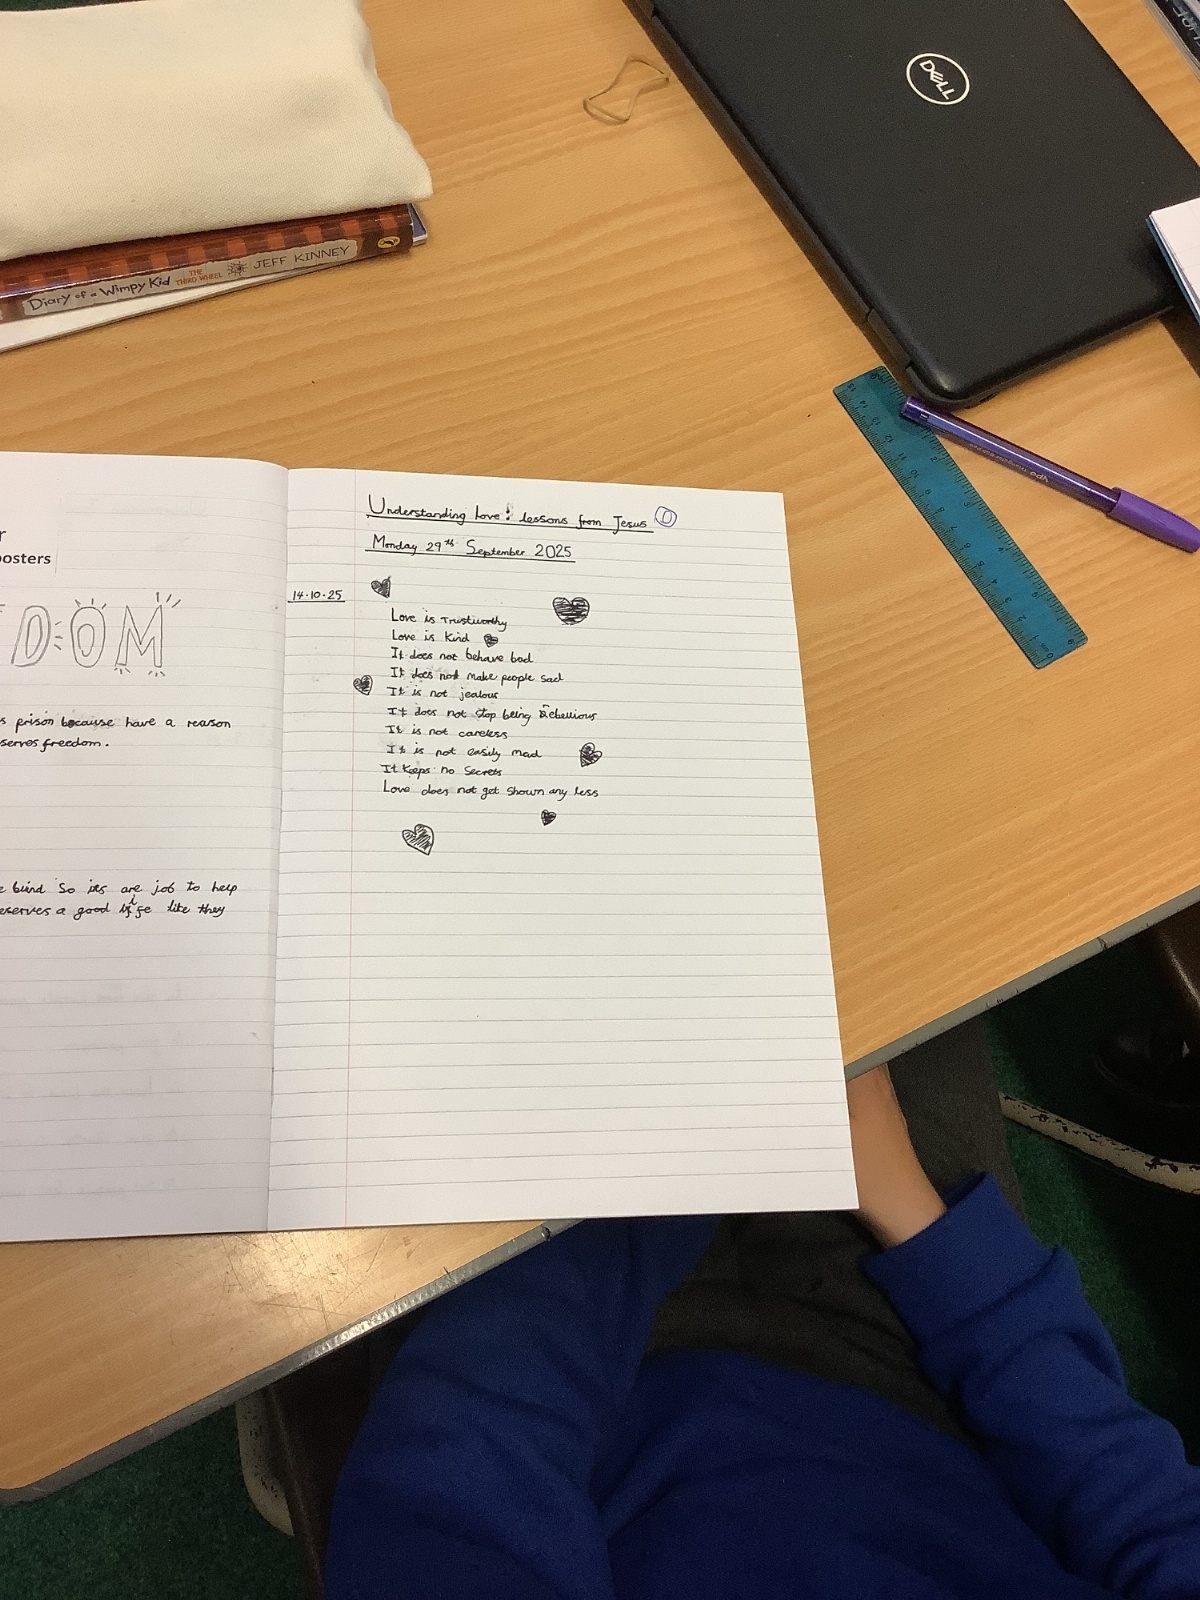 DELL
Diary of a Wimpy Kid THE THIRD WHEEL JEFF KINNEY
posters
DOM
prison because have a reason
serves freedom.
blind So its are job to help
eserves a good life like they
Understanding Love: lessons from Jesus
Monday 29th September 2025
14.10.25
Love is Trustworthy
Love is Kind
It does not behave bad
It does not make people sad
It is not jealous
It does not stop being Rebellious
It is not careless
It is not easily mad
It Keeps no Secrets
Love does not get Shown any less